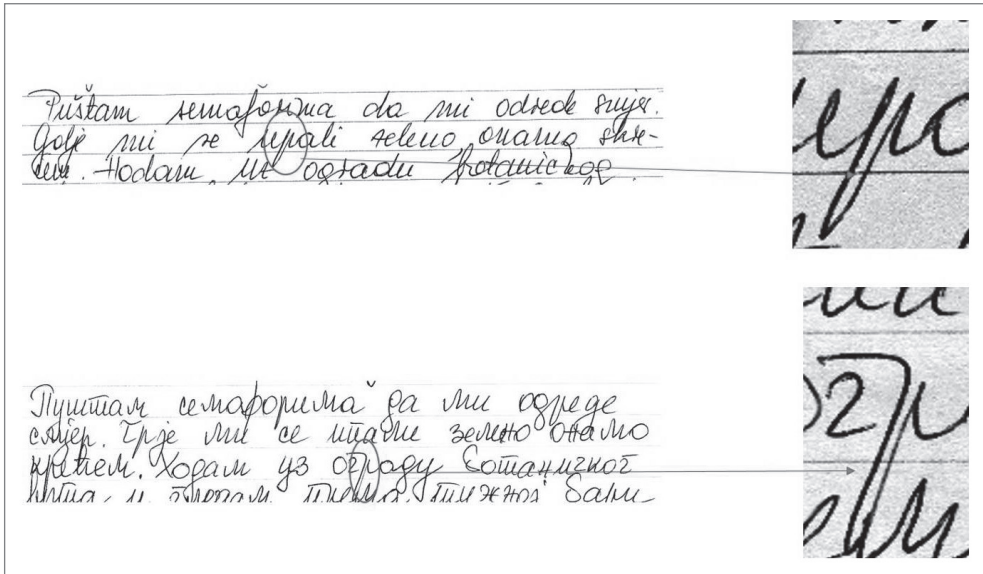 Puštam semaforima da mi odrede smjer.
Gdje mi se upali zeleno onamo skre-
ćem. Hodam uz ogradu botanickog
Пуштам семафорима да ми одреде
смјер. Гдје ми се упали зелено онамо
крећем. Ходам уз ограду ботаничког
и